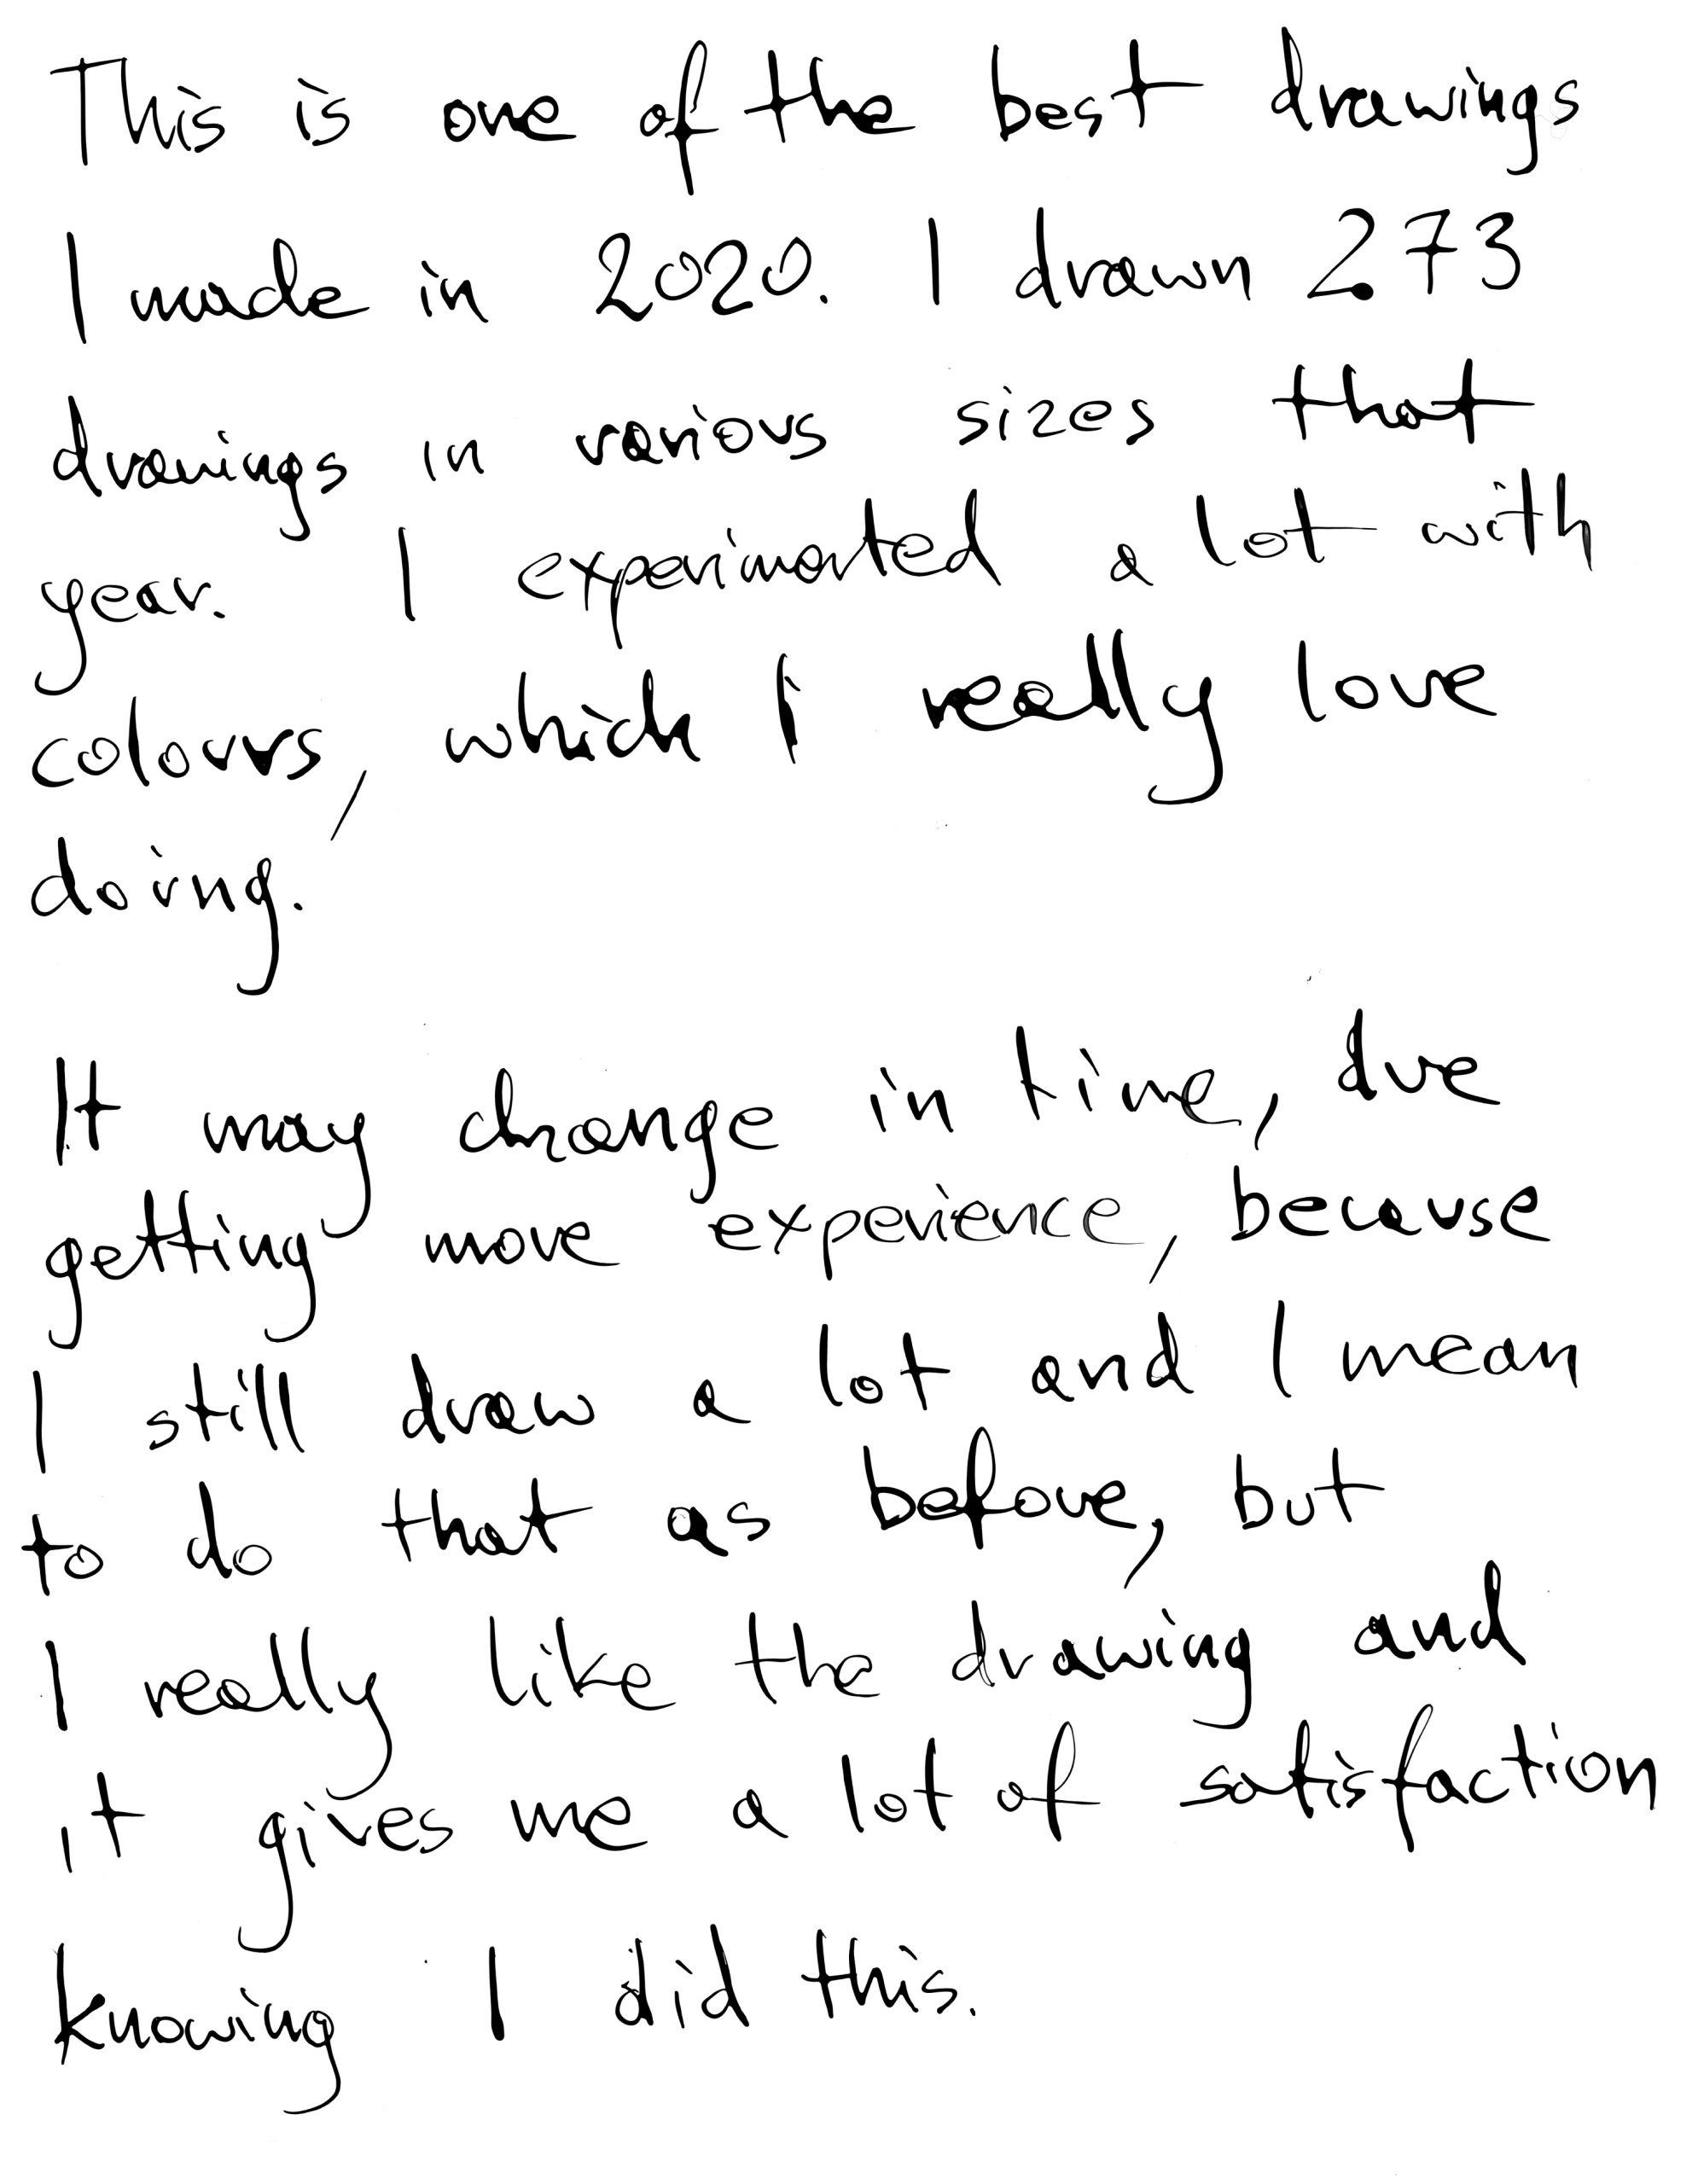 This is one of the best drawings
I made in 2020. I drawn 273
drawings in various sizes that
year. I experimented a lot with
colours, which I really love
doing.
It may change in time, due
getting more experience, because
I still draw a lot and I mean
to do that as before, but
I really like the drawing and
it gives me a lot of satisfaction
knowing I did this.